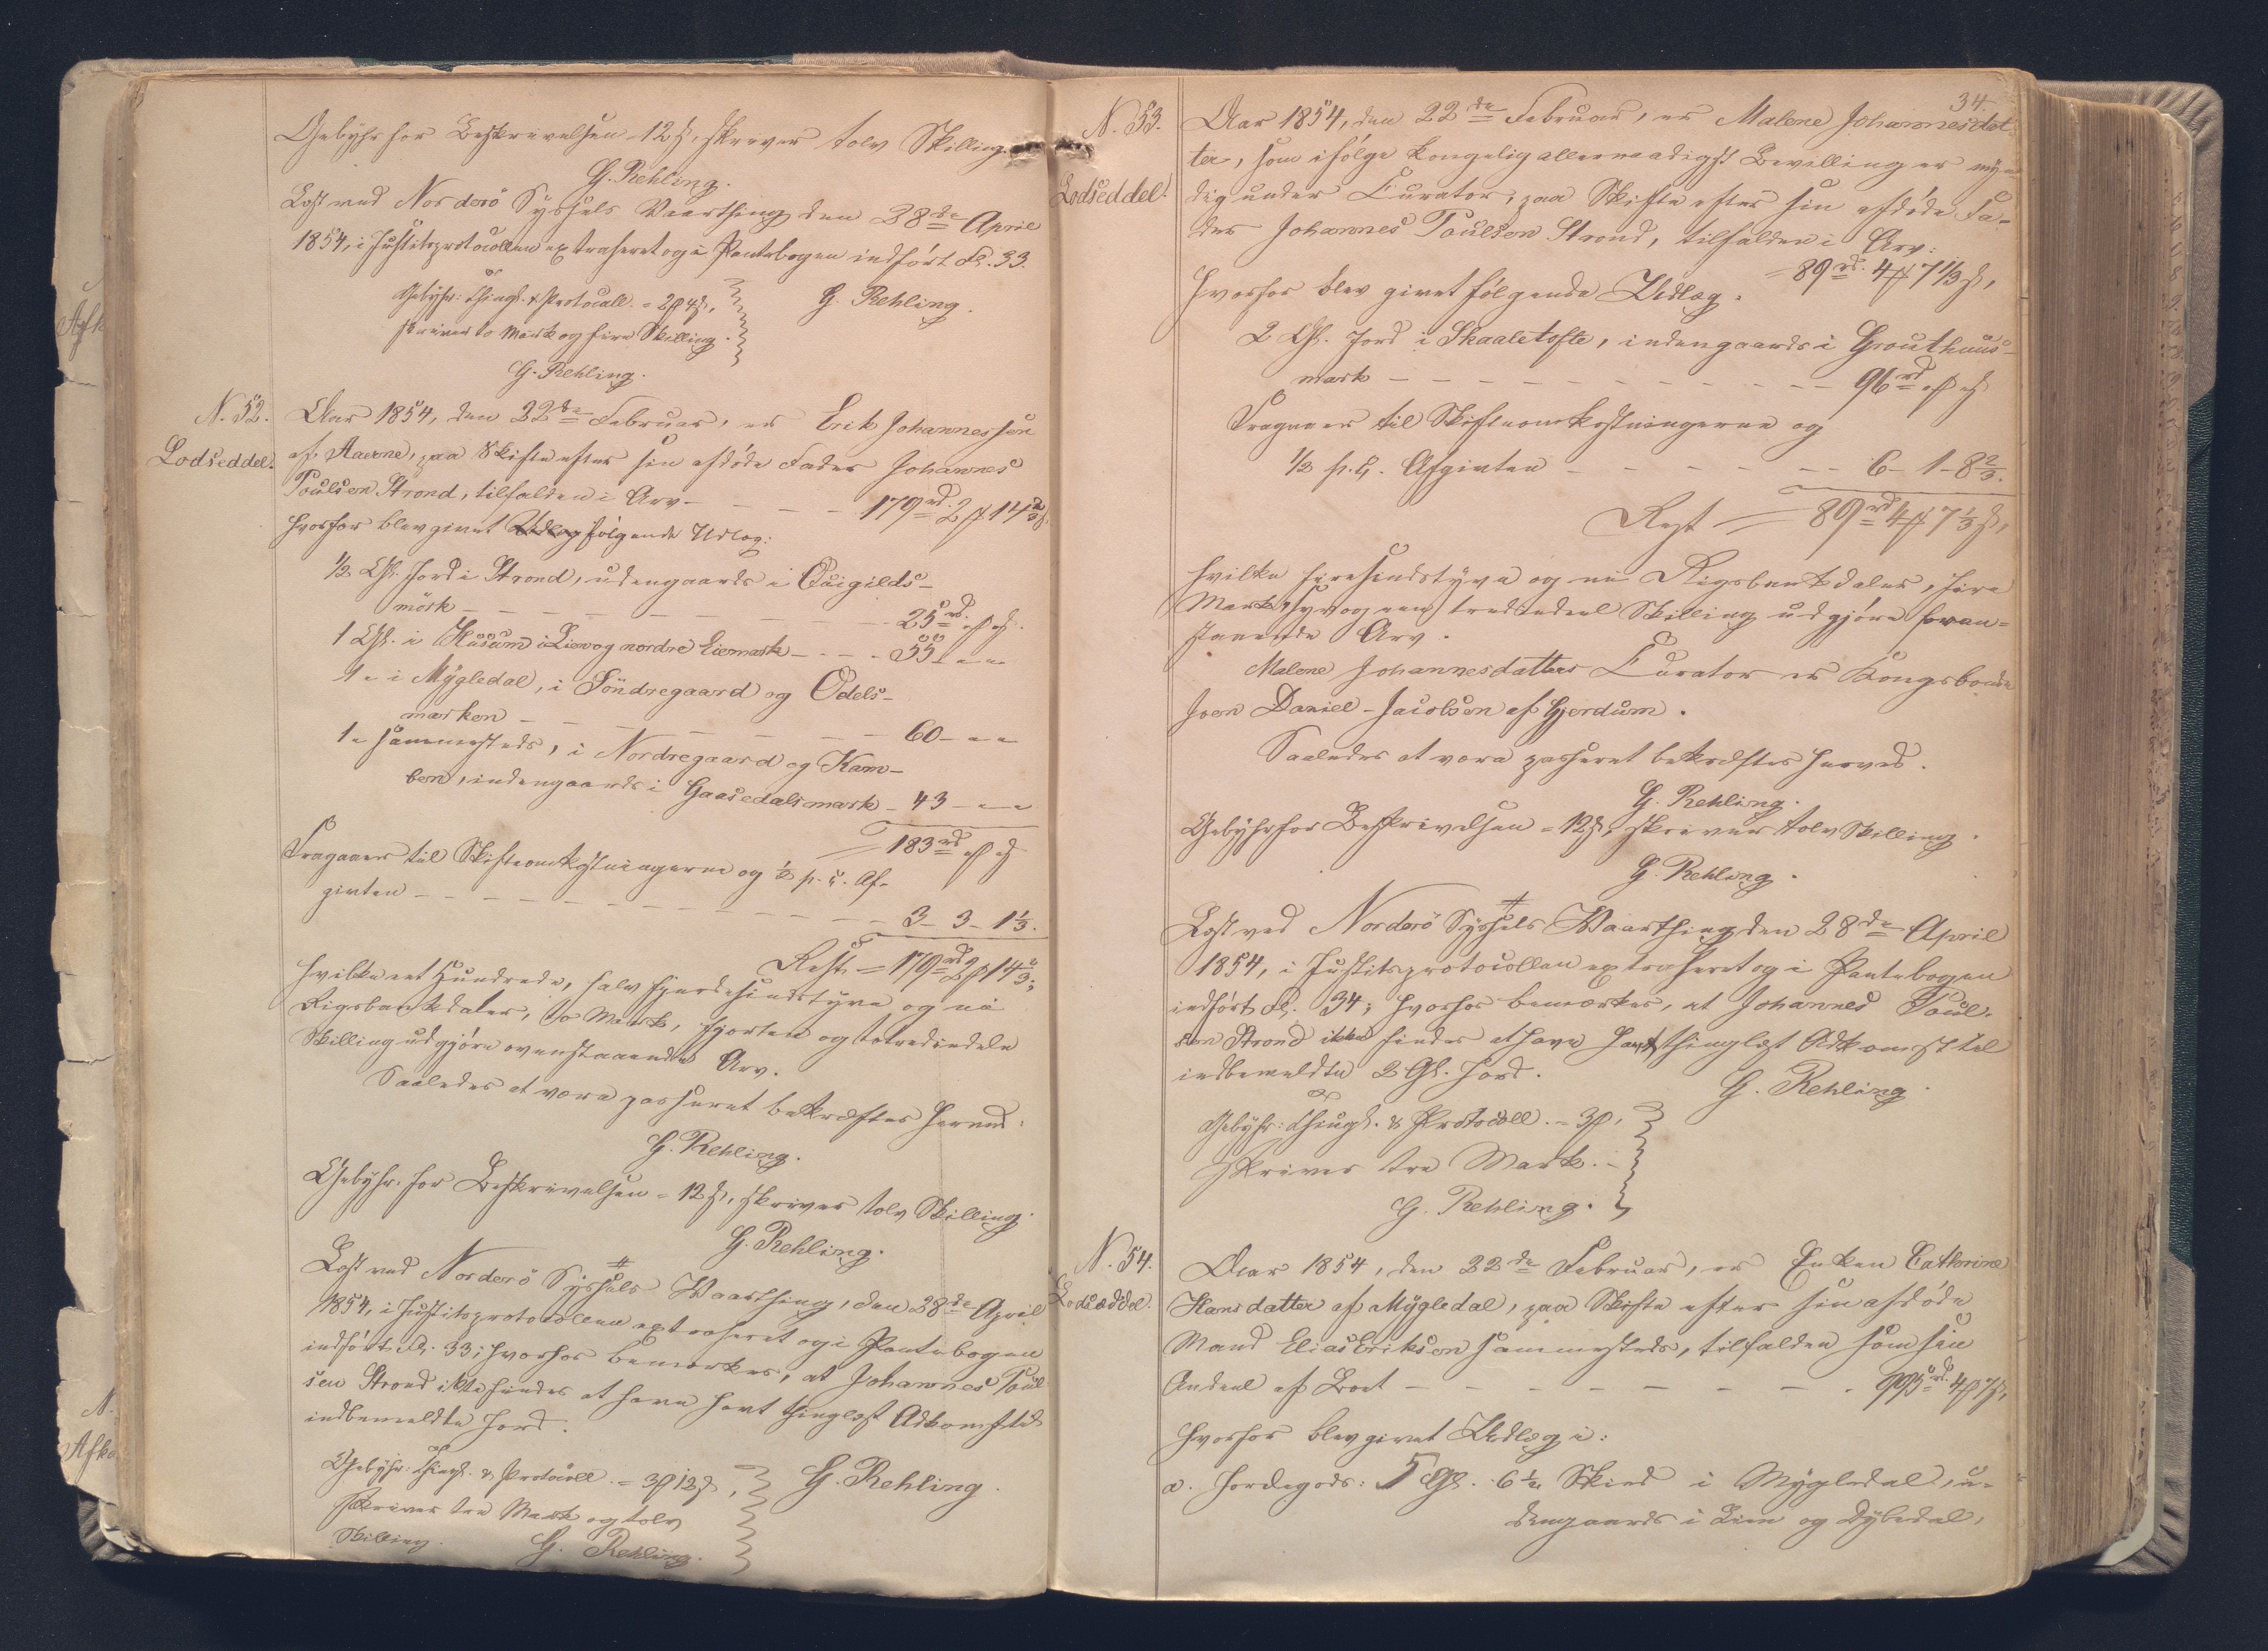 Gebyhr for Beskrivelsen 12 ß, skriver tolv Skilling.
G. Rehling.
Læst ved Norderö Syssels Vaarthing den 28de April
1854, i Justitsprotocollen extraheret og i Pantebogen indfört Fol. 33.
Gebyhr: Thingl. & Protocoll. = 2 ꟿ 4 ß,
skriver to Mark og fire Skilling.
G. Rehling.
G. Rehling.
N. 52.
Lodseddel.
Aar 1854, den 22de Februar, er Erik Johannessen
af Aaerne, paa Skifte efter sin afdöde Fader Johannes
Poulsen Strond, tilfalden i Arv - - - 179 rd. 2 ꟿ 14 2/3 ß.
hvorfor blev givet Udlæg fölgende Udlæg:
1/2 Gl. Jord i Strond, udengaards i Quigilds-
mörk - - - - - - 25 rd. ꟿ ß.
1 Gl. i Husum i Lien og nordre Liemark - - - 55 - " - "
1 " i Mygledal, i Söndregaard og Odels-
marken - - - - - - 60 - " - "
1 " sammesteds, i Nordregaard og Kam-
ben, indengaards i Gaasedalsmark - 43 - " - "
= 183 rd ꟿ ß
Fragaaer til Skifteomkostningerne og 1/2 p. C. Af-
giften - - - - - - 3 - 3 - 1 1/3.
Rest = 179 rd 2 ꟿ 14 2/3 ß,
hvilke eet Hundrede, halv fjerdesindstyve og ni
Rigsbankdaler, to Mark, fjorten og totrediedele
Skilling udgjöre ovenstaaende Arv.
Saaledes at være passeret bekræftes herved.
G. Rehling.
Gebyhr for Beskrivelsen = 12 ß, skriver tolv Skilling.
G. Rehling.
Læst ved Norderö Syssels Vaarthing, den 28de April
1854, i Justitsprotocollen extraheret og i Pantebogen
indfört Fol. 33; hvorfor bemærkes, at Johannes Poul-
sen Strond ikke findes at have havt thinglæst Adkomst til
indbemeldte Jord.
Gebyhr: Thingl. & Protocoll. = 3 ꟿ 12 ß,
skriver tre Mark og tolv
Skilling. G. Rehling.
G. Rehling.
34.
N. 53.
Lodseddel.
Aar 1854, den 22de Februar, er Malene Johannesdat-
ter, som ifölge Kongelig allernaadigst Bevilling er myn-
dig under Curator, paa Skifte efter sin afdöde Fa-
der Johannes Poulsen Strond, tilfalden i Arv:
= 89 rd. 4 ꟿ 7 1/3 ß,
hvorfor blev givet fölgende Udlæg.
2 Gl. Jord i Skaaletofte, indengaards i Grouthuus-
mark - - - - - - 96 rd ꟿ ß
Fragaaer til Skifteomkostningerne og
1/2 p. C. Afgiften - - - - - 6 - 1 - 8 2/3.
Rest = 89 rd 4 ꟿ 7 1/3 ß,
hvilke firesindstyve og ni Rigsbankdaler, fire
Mark, syv og een trediedeel Skilling udgjöre foran-
staaende Arv.
Malene Johannesdatters Curator er Kongsbonde
Joen Daniel Jacobsen af Gjerdum.
Saaledes at være passeret bekræftes herved.
G. Rehling.
Gebyhr for Beskrivelsen = 12 ß, skriver tolv Skilling.
G. Rehling.
Læst ved Norderö Syssels Vaarthing den 28de April
1854, i Justitsprotocollen extraheret og i Pantebogen
indfört Fol. 34; hvorfor bemærkes, at Johannes Poul-
sen Strond ikke findes at have havt thinglæst Adkomst til
indbemeldte 2 Gl. Jord.
G. Rehling.
Gebyhr: Thingl. & Protocoll. = 3 ꟿ,
skriver tre Mark.
G. Rehling.
N. 54.
Lodseddel.
Aar 1854, den 22de Februar, er Enken Cathrine
Hansdatter af Mygledal, paa Skifte efter sin afdöde
Mand Elias Eriksen sammesteds, tilfalden som sin
Andeel af Boet - - - - - - 995 rd. 4 ꟿ 7 ß,
hvorfor blev givet Udlæg i:
a. Jordegods: 5 Gl. 6 1/2 Skind i Mygledal, u-
dengaards i Lien og Dybedal,